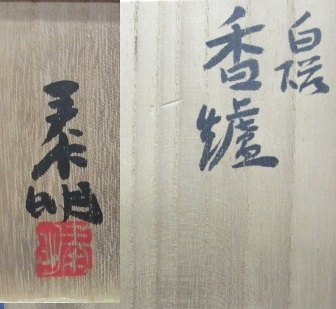 白磁
香爐
泰明